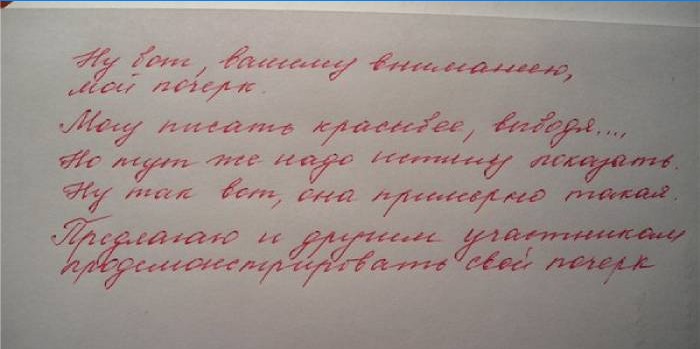 Ну вот, вашему вниманию,
мой почерк.
Могу писать красивее, выводя...,
Но тут же надо истину показать.
Ну так вот, она примерно такая.
Предлагаю и другим участникам
продемонстрировать свой почерк